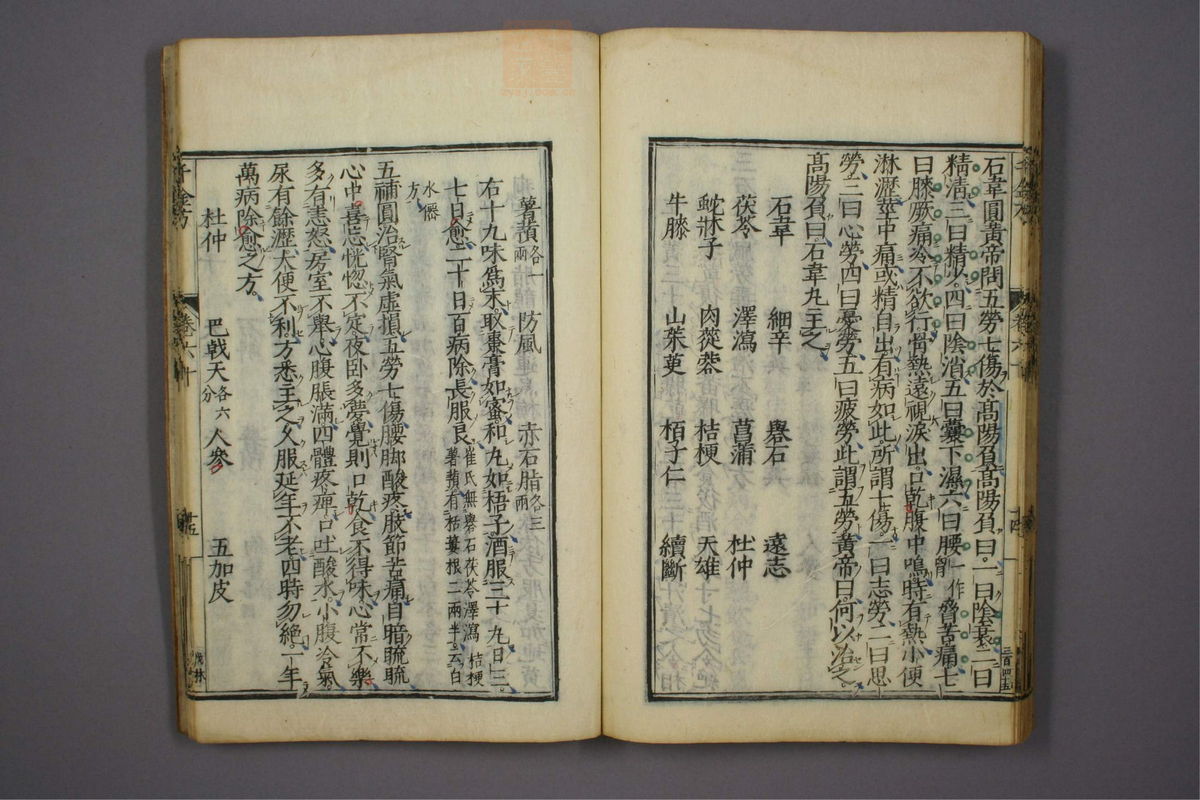 石韋圓黃帝問五勞七傷於髙陽負髙陽負曰一曰陰衰二曰
精清三曰精少四曰陰消五曰囊下濕六曰腰一作胷苦痛七
曰膝厥痛冷不欲行骨熱遠視淚出口乾腹中鳴時有熱小便
淋瀝莖中痛或精自出有病如此所謂七傷一曰志勞二曰思
勞三曰心勞四曰憂勞五曰疲勞此謂五勞黃帝曰何以治之
髙陽負曰石韋九主之
石韋 細辛 礜石 遠志
茯苓 澤瀉 菖蒲 杜仲
蛇牀子 肉蓯蓉 桔梗 天雄
牛膝 山茱萸 栢子仁 續斷
薯蕷各一兩 防風 赤石脂各三兩
右十九味爲末取棗膏如蜜和丸如梧子酒服三十丸日三
七日愈二十日百病除長服良崔氏無礜石茯苓澤瀉桔梗
薯蕷有栝蔞根二兩半云白
水僊方
五補圓治腎氣虛損五勞七傷腰脚酸疼肢節苦痛目暗𥆨𥆨
心中喜忘恍惚不定夜卧多夢覺則口乾食不得味心常不樂
多有恚怒房室不舉心腹脹滿四體疼痺口吐酸水小腹冷氣
尿有餘瀝大便不利方悉主之久服延年不老四時勿絶一年
萬病除愈之方
杜仲 巴戟天各六分 人參 五加皮
千金方
卷六十